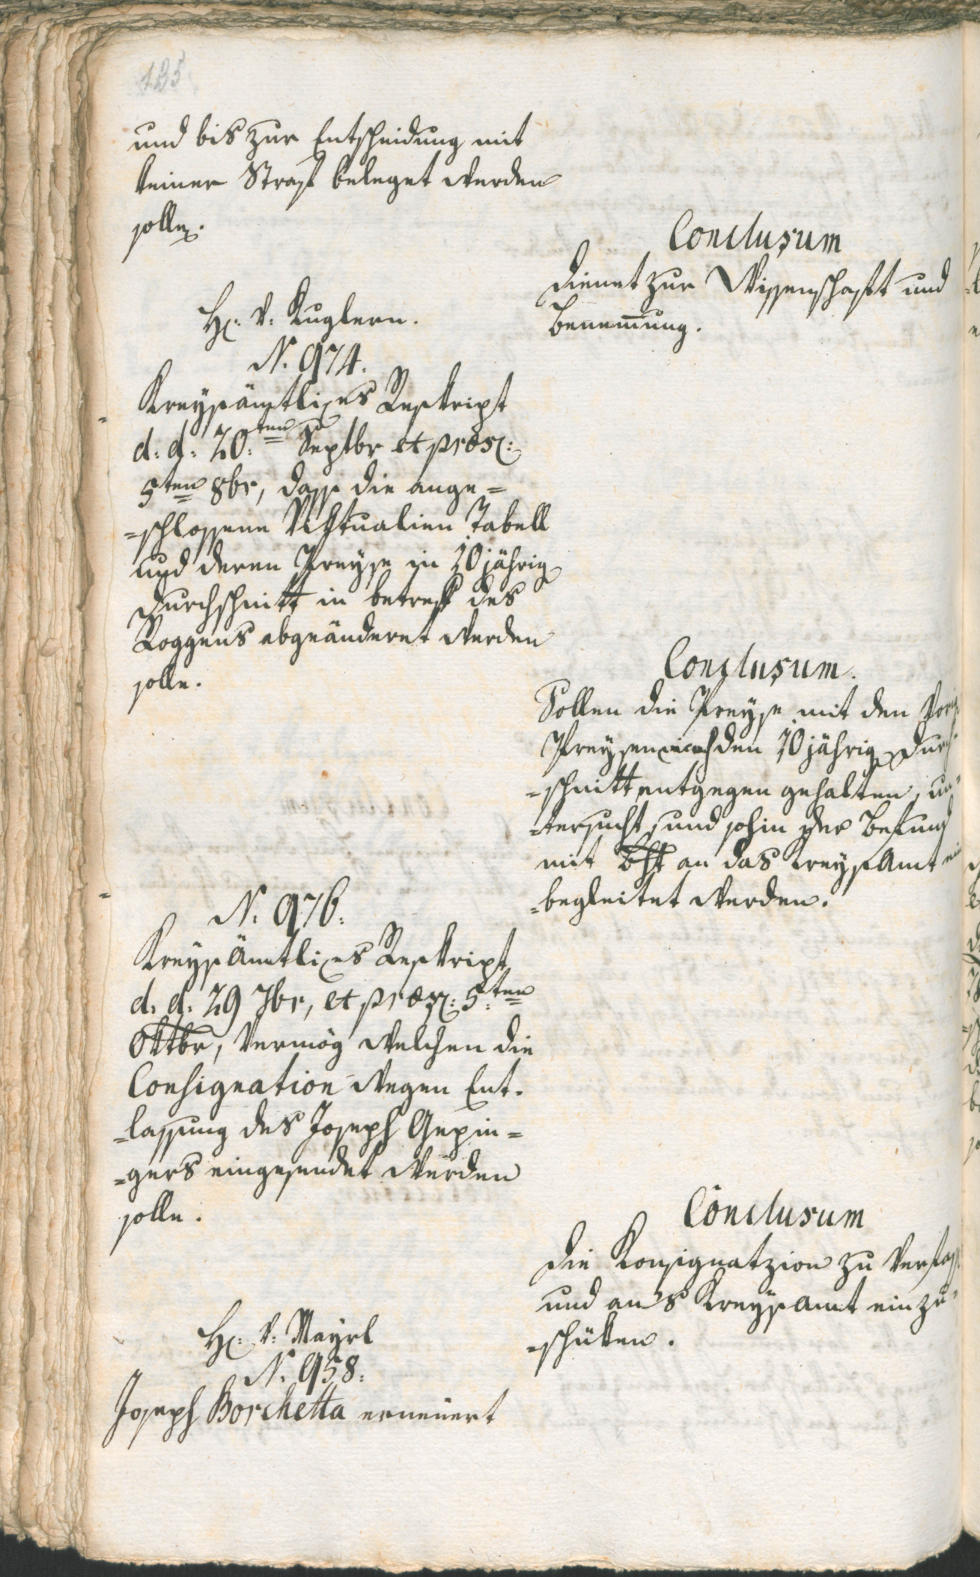 135
und bis zur Entscheidung mit
keiner Straf beleget werden
solle.
Conclusum
Dienet zur Wissenschaft und
Benemung.
H: v: Kuglern.
N. 974.
Kreysämtliches Reskript
d: d: 20.ten Septbr et præs:
5ten 8br, dass die ange=
=schlossene Viktualien Tabell
und deren Preyse in 10jährig
Durchschnitt in betreff des
Roggens abgeänderet werden
solle.
Conclusum.
Sollen die Preyse mit den
Preysen nach den 10jährig Durch
=schnitt entgegen gehalten, un
=tersucht, und sohin der Befund
mit Bht an das Kreysamt ein
=begleitet werden.
N. 976.
Kreysämtliches Reskript
d. d. 29 7br, et præs: 5.ten
Oktbr, vermög welchen die
Consignation wegen Ent=
=lassung des Joseph Gepin=
=gers eingesendet werden
solle.
Conclusum
Die Konsignatzion zu verfass
und an's Kreysamt einzu=
=schüken.
H: v: Mayrl
N. 958.
Joseph Borchetta erneuert